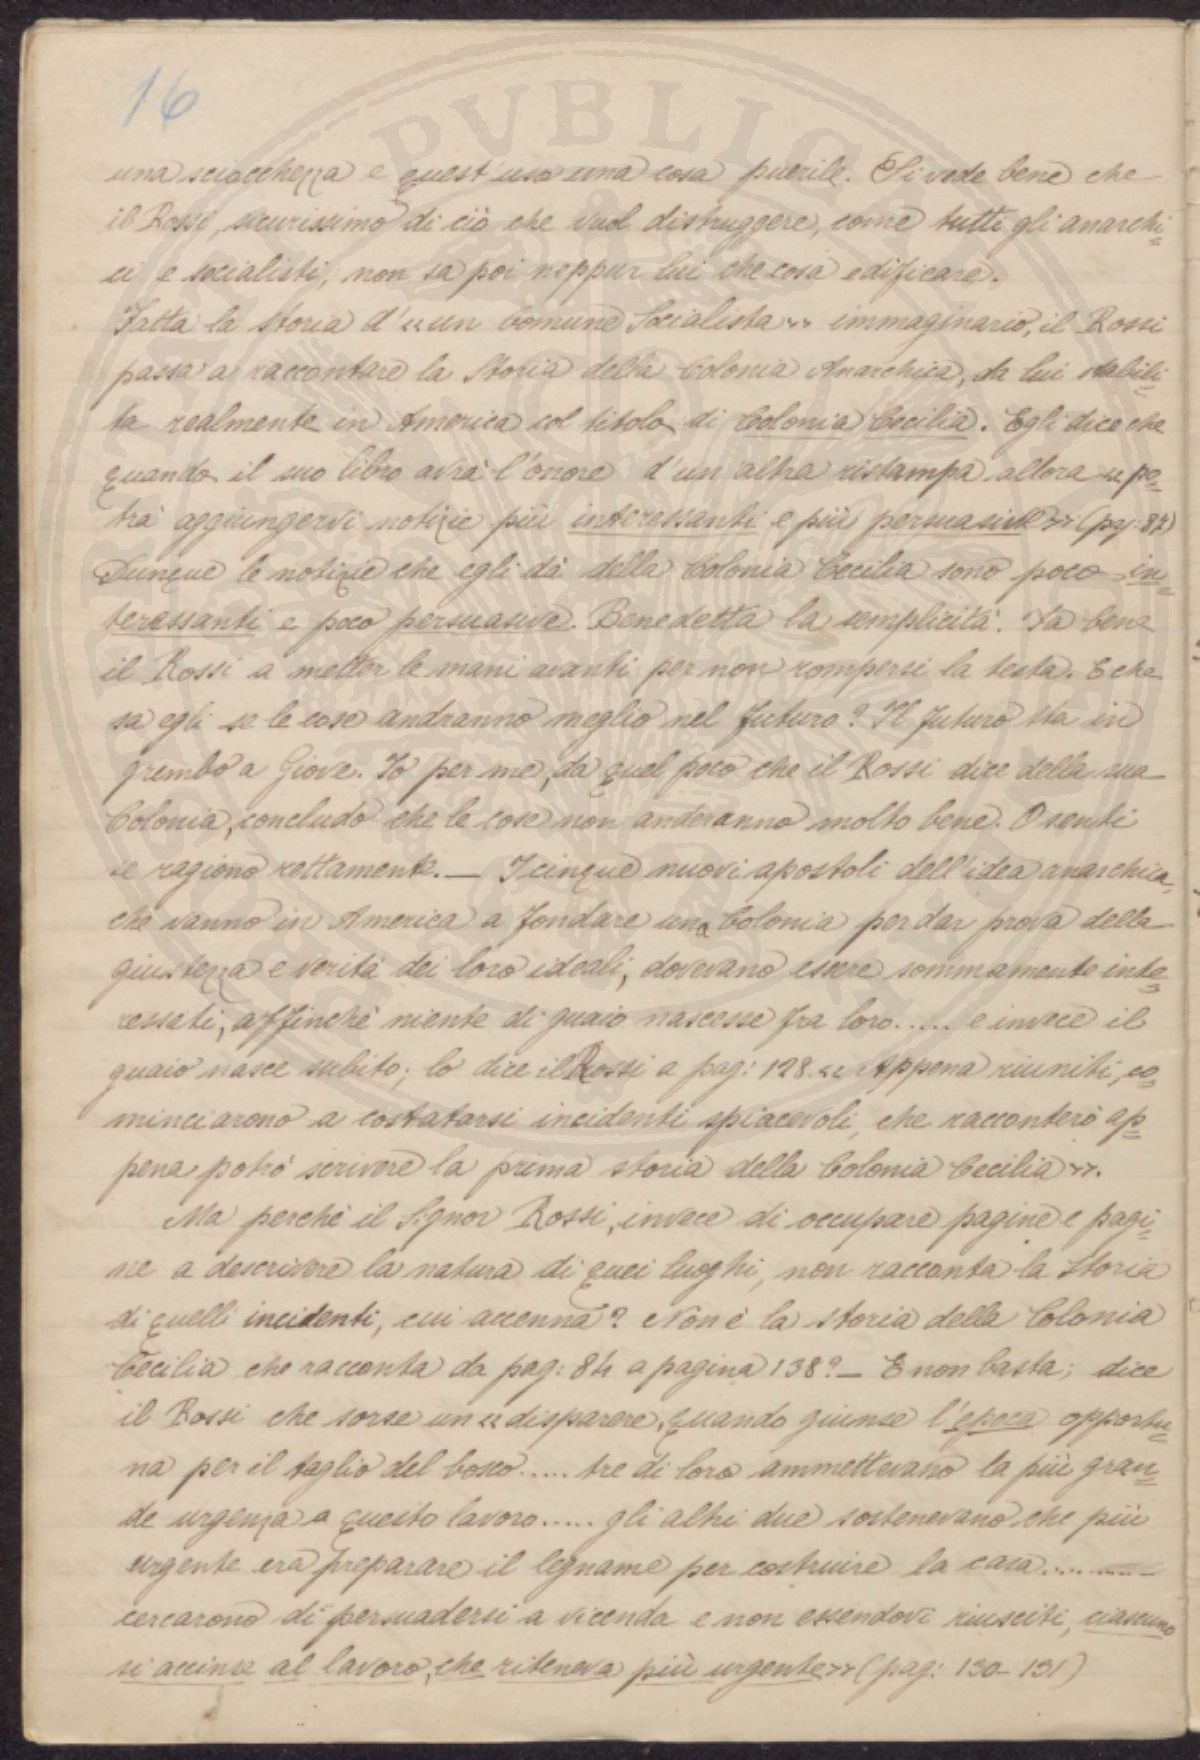 16
una sciocchezza e quest'uso una cosa puerile. Si vede bene che
il Rossi, sicurissimo di ciò che vuol distruggere, come tutti gli anarchi=
ci e socialisti, non sa poi neppur lui che cosa edificare.
Fatta la storia d'«un Comune Socialista» immaginario, il Rossi
passa a raccontare la Storia della Colonia Anarchica, da lui stabili=
ta realmente in America col titolo di Colonia Cecilia. Egli dice che
quando il suo libro avrà l'onore d'un'altra ristampa allora «po=
trà aggiungervi notizie più interessanti e più persuasive» (pag: 84)
Dunque le notizie che egli dà della Colonia Cecilia sono poco in=
teressanti e poco persuasive. Benedetta la semplicità. Fa bene
il Rossi a metter le mani avanti per non rompersi la testa. E che
sa egli se le cose andranno meglio nel futuro? Il futuro sta in
grembo a Giove. Io per me, da quel poco che il Rossi dice della sua
Colonia, concludo che le cose non anderanno molto bene. O senti
se ragiono rettamente. — I cinque nuovi apostoli dell'idea anarchica,
che vanno in America a fondare una Colonia per dar prova della
giustezza e verità dei loro ideali, dovevano essere sommamente inte=
ressati, affinchè niente di guaio nascesse fra loro..... e invece il
guaio nasce subito; lo dice il Rossi a pag: 128. «Appena riuniti, co=
minciarono a costatarsi incidenti spiacevoli, che racconterò ap=
pena potrò scrivere la prima storia della Colonia Cecilia».
Ma perchè il Signor Rossi, invece di occupare pagine e pagi=
ne a descrivere la natura di quei luoghi, non racconta la Storia
di quelli incidenti, cui accenna? Non è la storia della Colonia
Cecilia che racconta da pag: 84 a pagina 138? — E non basta; dice
il Rossi che sorse un «disparere, quando giunse l'epoca opportu=
na per il taglio del bosco..... tre di loro ammettevano la più gran=
de urgenza a questo lavoro..... gli altri due sostenevano che più
urgente era preparare il legname per costruire la casa.....
cercarono di persuadersi a vicenda e non essendovi riusciti, ciascuno
si accinse al lavoro, che riteneva più urgente» (pag: 130-131)
PVBLIC